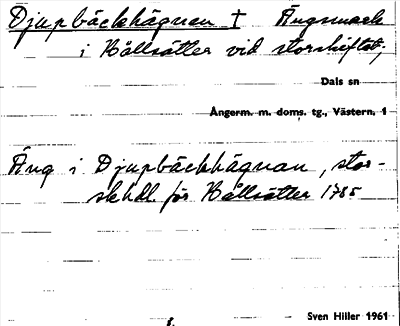 Djupbäckhägnan † Ängsmark
i Hållsätter vid storskiftet;
Dals sn
Ångerm. m. doms. tg., Västern. 1
Äng i Djupbäckhägnan, stor-
skhdl. för Hållsätter 1785
Sven Hiller 1961